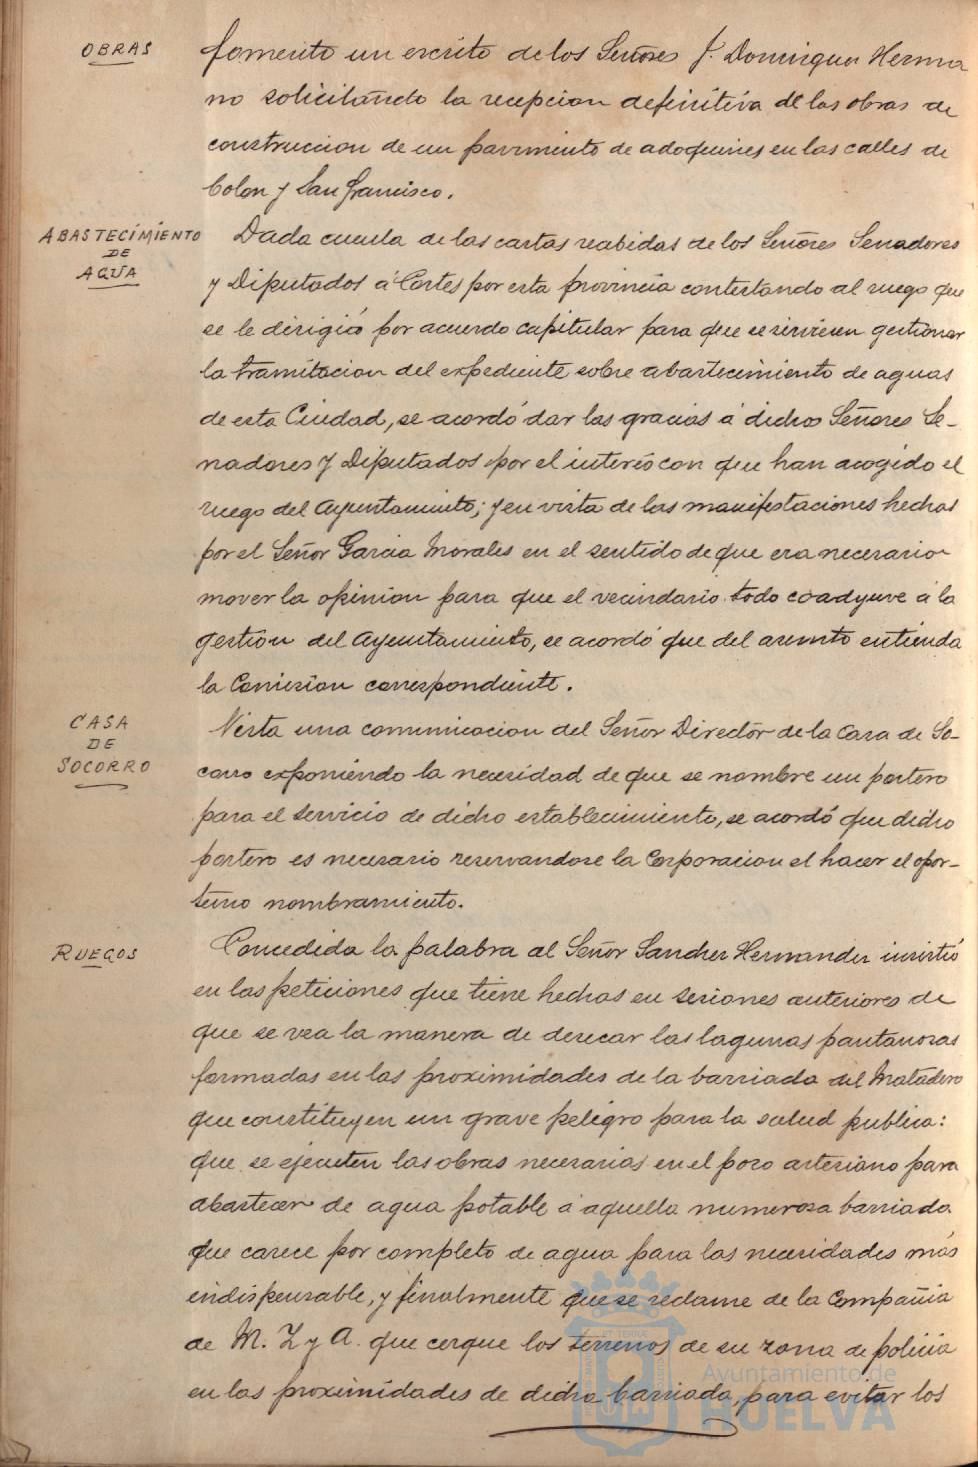 OBRAS
fomento un escrito de los Señores J. Dominguez Herma
no solicitando la recepcion definitiva de las obras de
construccion de un pavimento de adoquines en las calles de
Colon y San Francisco.
ABASTECIMIENTO
DE
AGUA
Dada cuenta de las cartas recibidas de los Señores Senadores
y Diputados á Cortes por esta provincia contestando al ruego que
se le dirigió por acuerdo capitular para que se sirviesen gestionar
la tramitacion del expediente sobre abastecimiento de aguas
de esta Ciudad, se acordó dar las gracias á dichos Señores Se-
nadores y Diputados por el interés con que han acogido el
ruego del Ayuntamiento; y en vista de las manifestaciones hechas
por el Señor Garcia Morales en el sentido de que era necesario
mover la opinion para que el vecindario todo coadyuve á la
gestion del Ayuntamiento, se acordó que del asunto entienda
la Comision correspondiente.
CASA
DE
SOCORRO
Vista una comunicacion del Señor Director de la Casa de So-
corro exponiendo la necesidad de que se nombre un portero
para el servicio de dicho establecimiento, se acordó que dicho
portero es necesario reservandose la Corporacion el hacer el opor-
tuno nombramiento.
RUEGOS
Concedida la palabra al Señor Sanchez Hernandez insistió
en las peticiones que tiene hechas en sesiones anteriores de
que se vea la manera de desecar las lagunas pantanosas
formadas en las proximidades de la barriada del Matadero
que constituyen un grave peligro para la salud publica:
que se ejecuten las obras necesarias en el pozo artesiano para
abastecer de agua potable á aquella numerosa barriada
que carece por completo de agua para las necesidades más
indispensable, y finalmente que se reclame de la Compañia
de M. Z y A. que cerque los terrenos de su zona de policia
en las proximidades de dicha barriada, para evitar los
Ayuntamiento de
HUELVA